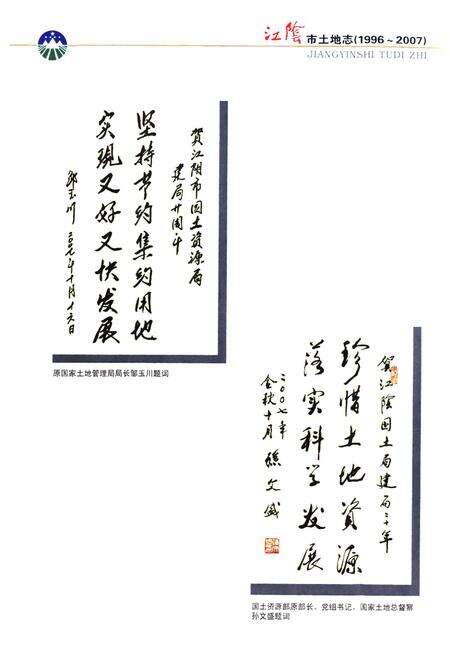 江陰市土地志(1996~2007)
JIANGYINSHI TUDI ZHI
賀江阴市国土資源局
建局廿周年
坚持节约集约用地
实现又好又快发展
邹玉川
二〇〇七年十月十六日
原国家土地管理局局长邹玉川题词
賀江陰国土局建局二十年
珍惜土地資源
落实科学发展
二〇〇七年
金秋十月 孫文盛
国土资源部原部长、党组书记、国家土地总督察
孙文盛题词